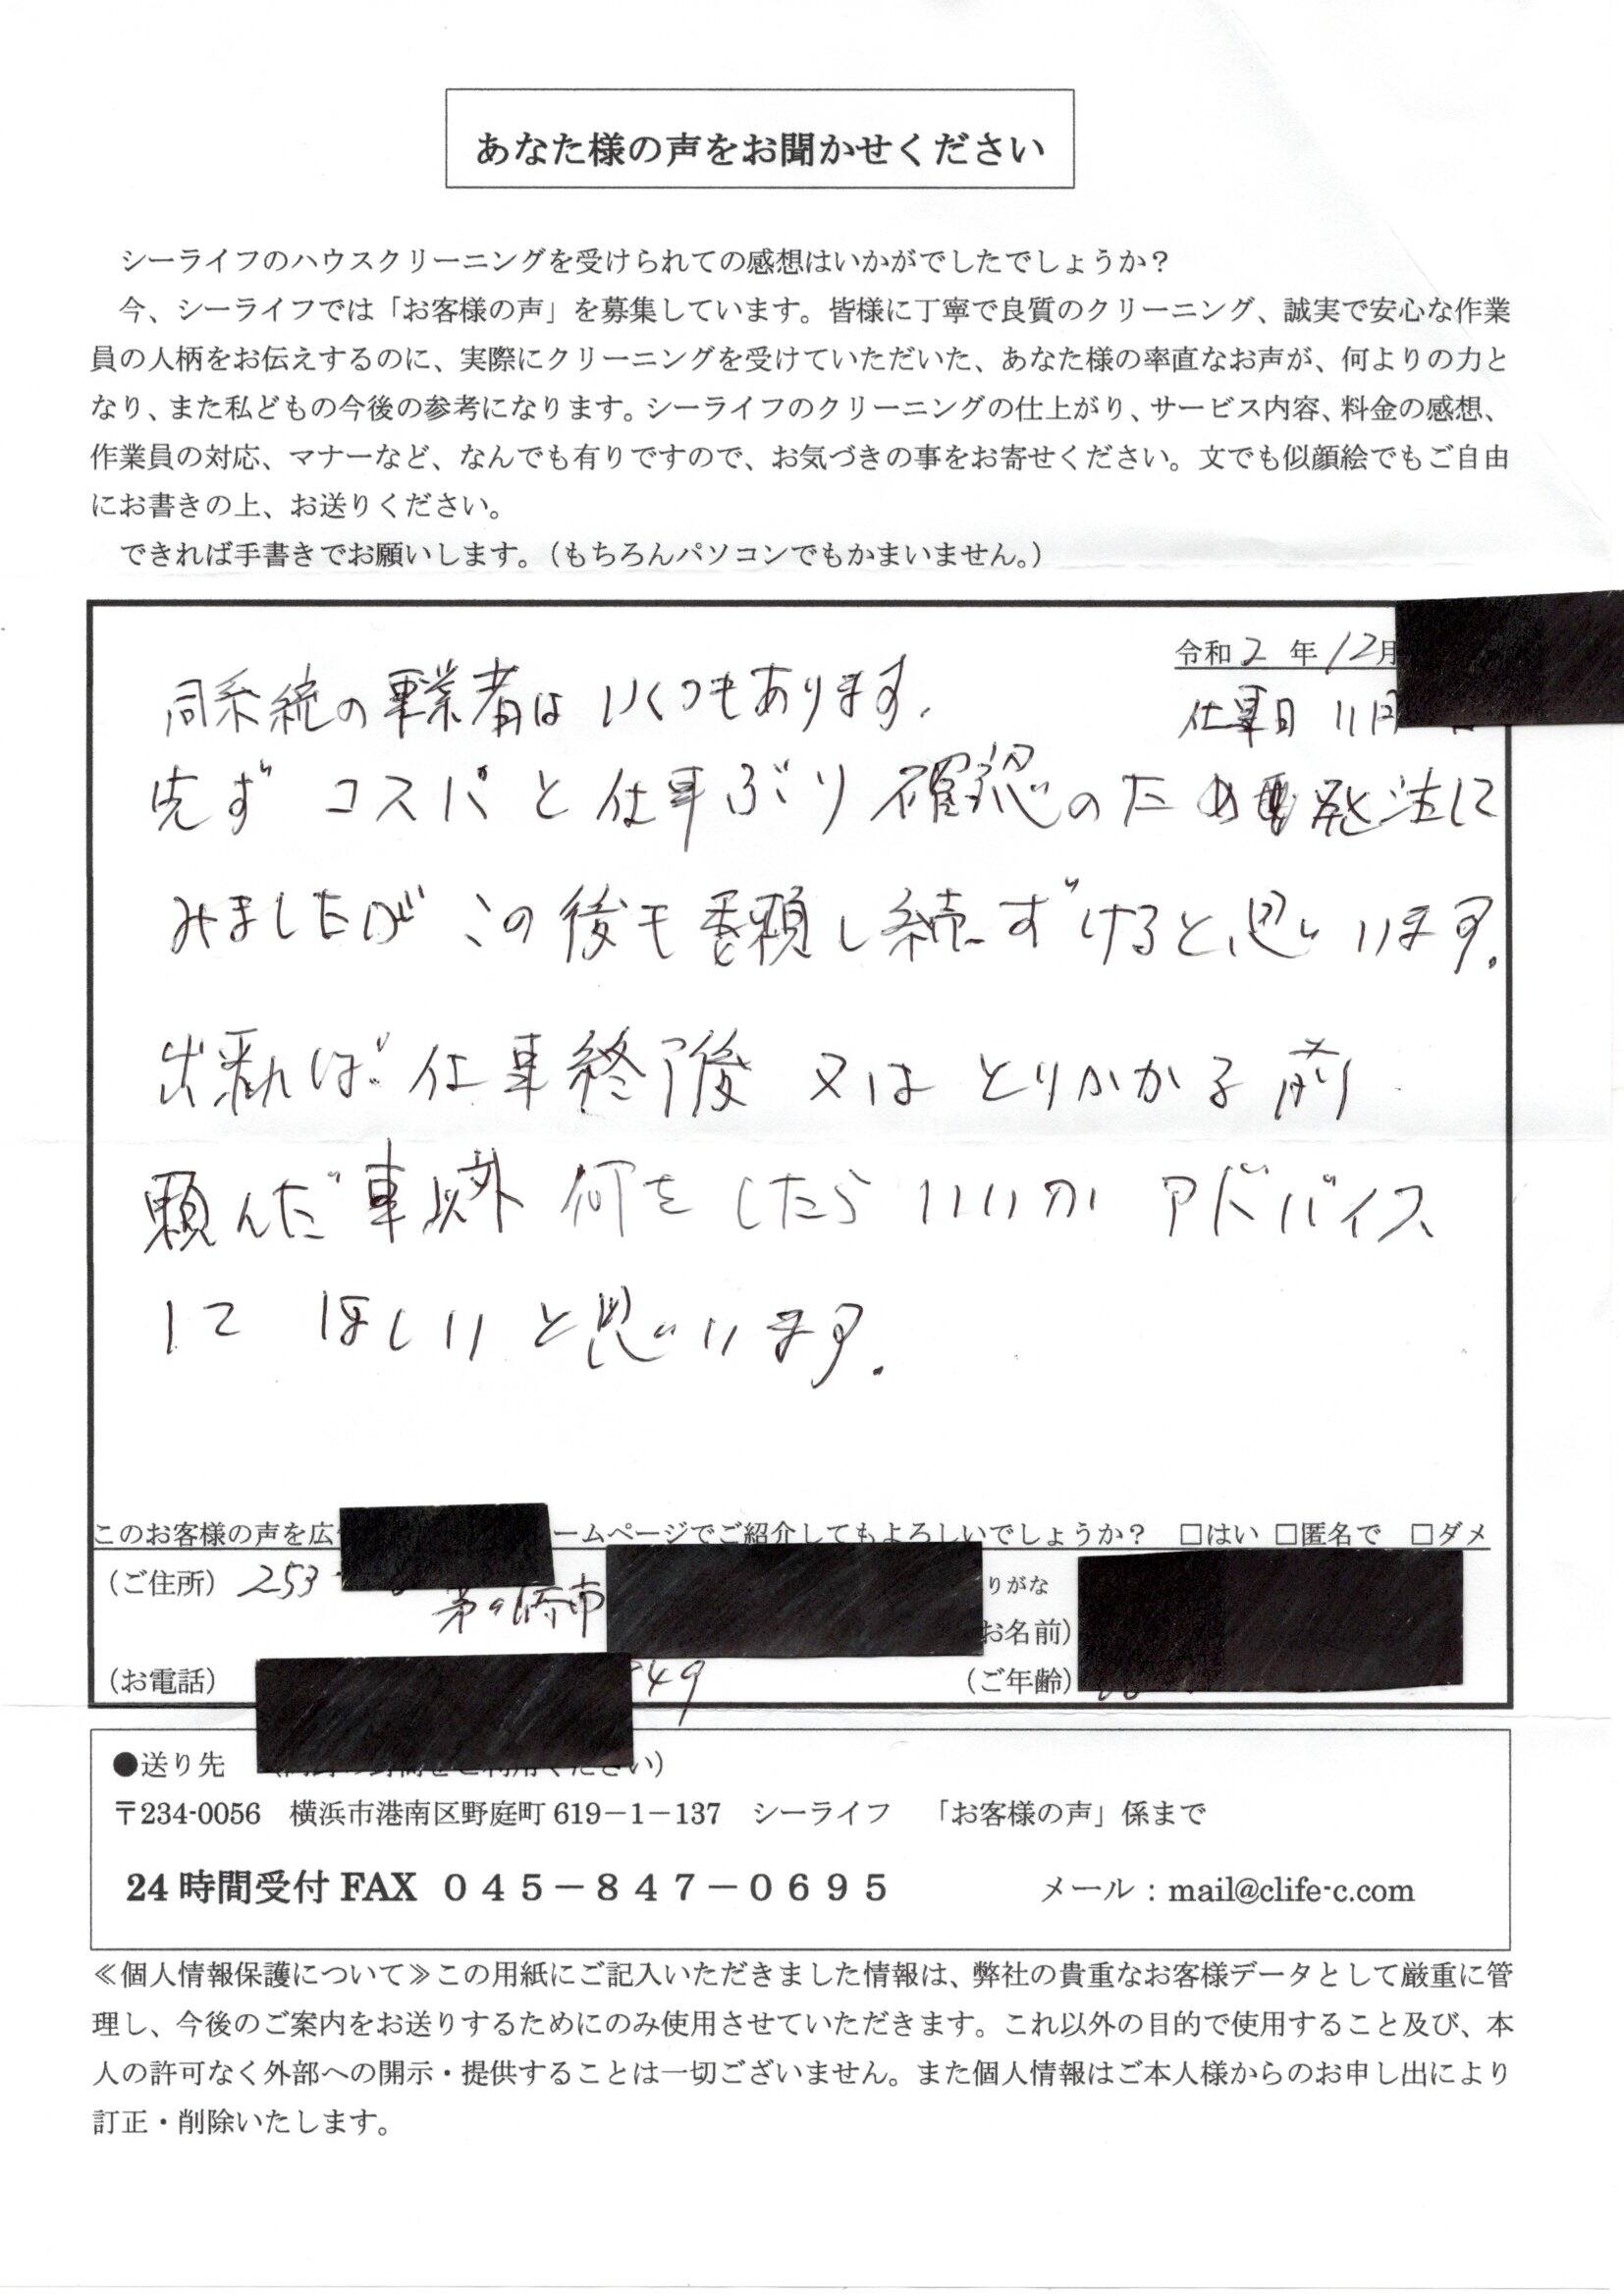 あなた様の声をお聞かせください
シーライフのハウスクリーニングを受けられての感想はいかがでしたでしょうか？
今、シーライフでは「お客様の声」を募集しています。皆様に丁寧で良質のクリーニング、誠実で安心な作業
員の人柄をお伝えするのに、実際にクリーニングを受けていただいた、あなた様の率直なお声が、何よりの力と
なり、また私どもの今後の参考になります。シーライフのクリーニングの仕上がり、サービス内容、料金の感想、
作業員の対応、マナーなど、なんでも有りですので、お気づきの事をお寄せください。文でも似顔絵でもご自由
にお書きの上、お送りください。
できれば手書きでお願いします。（もちろんパソコンでもかまいません。）
令和2年12月
仕事日 11月
同系統の事業者はいくつもあります。
先ず コスパと仕事ぶり確認のため 発注して
みましたが この後も委頼し続ずけると思います。
出来れば 仕事終了後 又は とりかかる前
頼んだ事以外 何をしたらいいか アドバイス
して ほしいと思います。
このお客様の声を広 ームページでご紹介してもよろしいでしょうか？ □はい □匿名で □ダメ
（ご住所） 253
茅ヶ崎市
りがな
お名前）
（お電話） 49 （ご年齢）
●送り先 ください）
〒234-0056 横浜市港南区野庭町 619－1－137 シーライフ 「お客様の声」係まで
24 時間受付 FAX ０４５－８４７－０６９５ メール：mail@clife-c.com
≪個人情報保護について≫この用紙にご記入いただきました情報は、弊社の貴重なお客様データとして厳重に管
理し、今後のご案内をお送りするためにのみ使用させていただきます。これ以外の目的で使用すること及び、本
人の許可なく外部への開示・提供することは一切ございません。また個人情報はご本人様からのお申し出により
訂正・削除いたします。